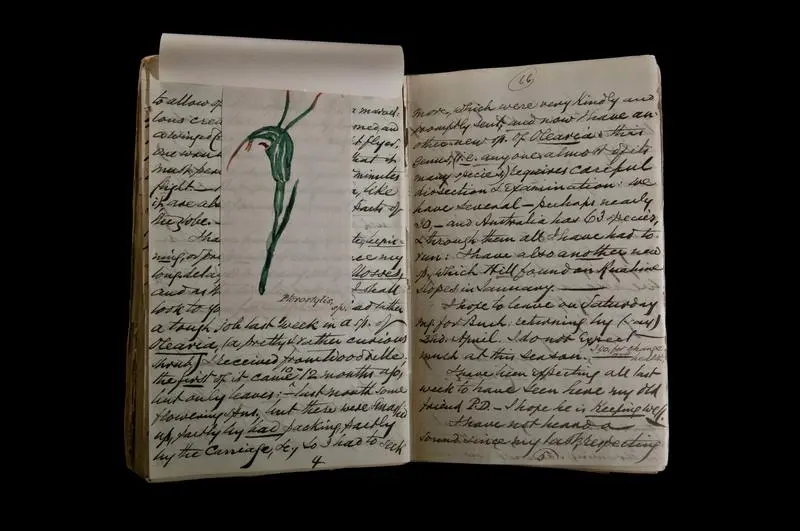 to allow of
lous crea
a wings (
one went
flight —
it are ab
the globe —
I ha
long dela
and as
look to
a marvel:
med an
t flyer,
that it
minutes
, like
tracts of
ce my
Mosses,
I shall
Pterostylis, sp:
ad rather
a tough job last week in a sp. of
Olearia, (a pretty & rather curious
shrub) I received from Wooddelle:
the first of it came 10–12 months ago,
but only leaves: — last month some
flowering spns, but these were smashed
up, partly by bad packing, partly
by the Carriage, &c, so I had to seek
4
16
more, which were very kindly and
promptly sent, and now I have an-
other new sp. of Olearia: this
genus, (i.e. any one almost of its
many species,) requires careful
dissection & examination: we
have several — perhaps nearly
30. — and Australia has 63 species,
& through them all I have had to
run: I have also another new
sp., which Hill found on Ruahine
slopes in January. —
I hope to leave on Saturday
mg. for Bush: returning by (say)
2nd. April. I do not expect
much at this season. I go, for change
I have been expecting all last
week to have seen here my old
friend P.D. — I hope he is keeping well.
I have not heard a
sound since my last respecting